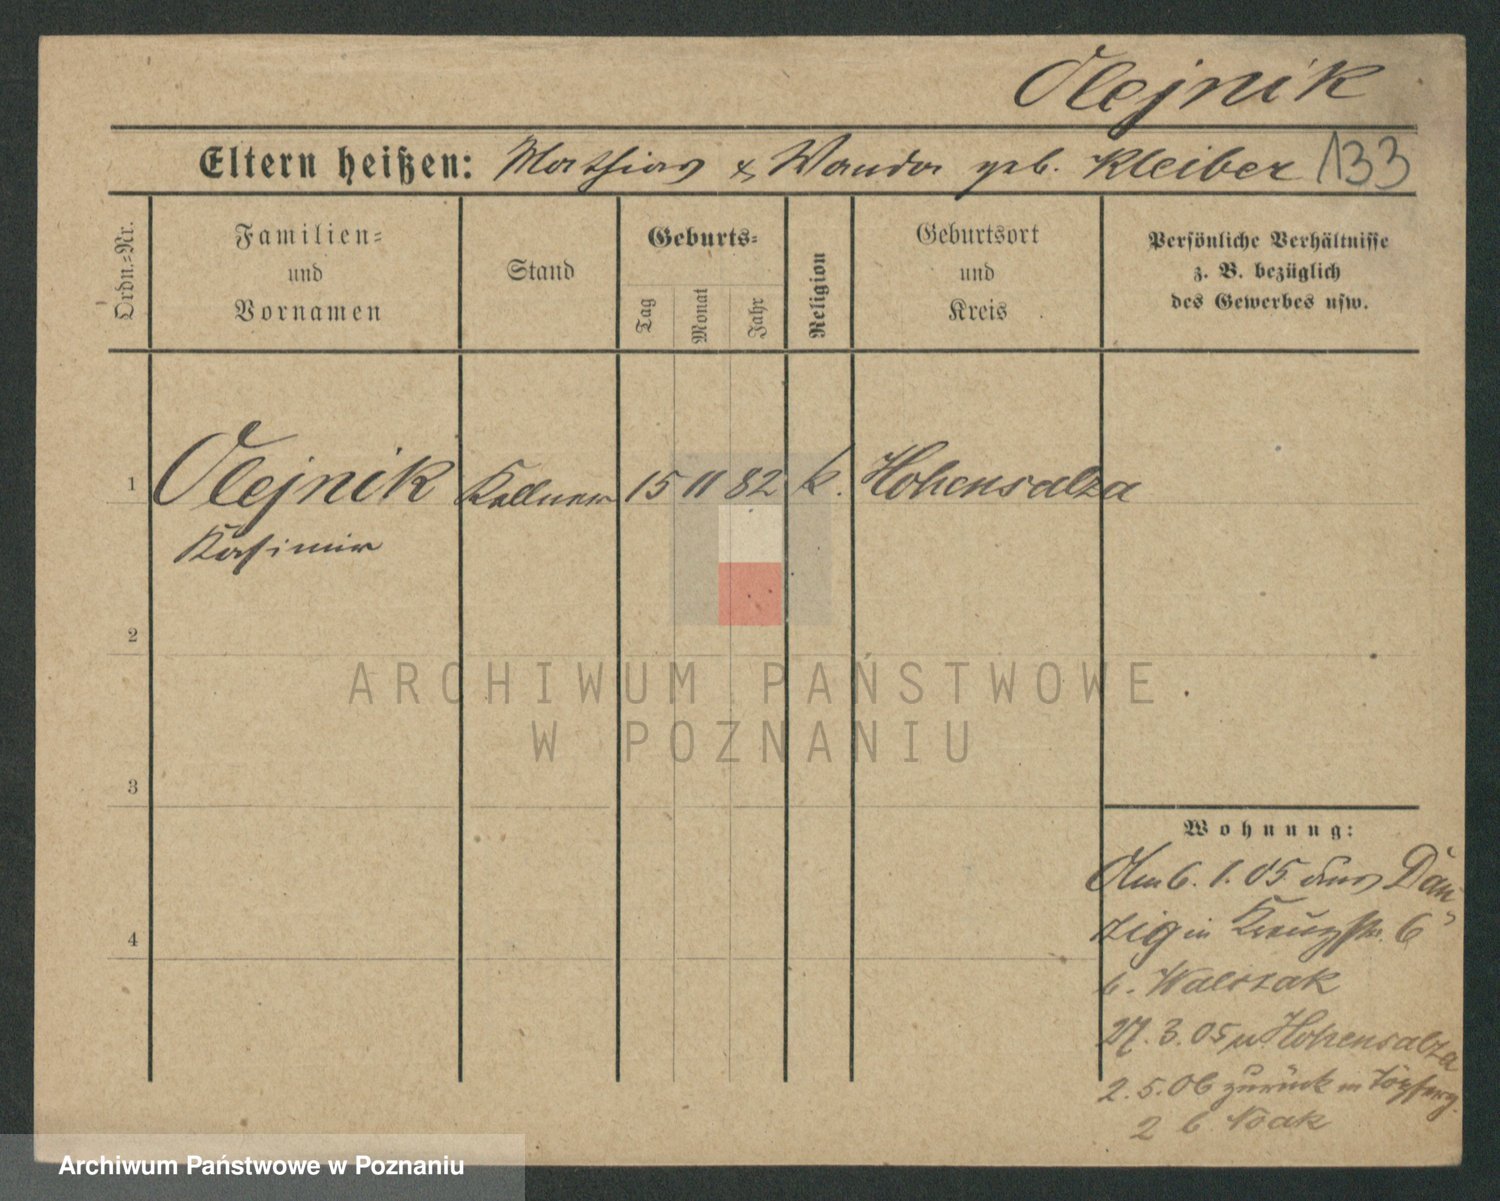 Olejnik
Eltern heißen: Mathias & Wanda geb. Kleiber 133
Ordn.-Nr.
Familien-
und
Vornamen
Stand
Geburts-
Tag
Monat
Jahr
Religion
Geburtsort
und
Kreis
Persönliche Verhältnisse
z. B. bezüglich
des Gewerbes usw.
1 Olejnik Kellner 15 11 82 k. Hohensalza
Kasimir
2
3
4
Wohnung:
Am 6. 1. 05 aus Dan-
zig in Kreuzstr. 6
b. Walczak
27. 3. 05 n. Hohensalza
2. 5. 06 zurück in Töpferg.
2 b Noak
ARCHIWUM PAŃSTWOWE
W POZNANIU
Archiwum Państwowe w Poznaniu